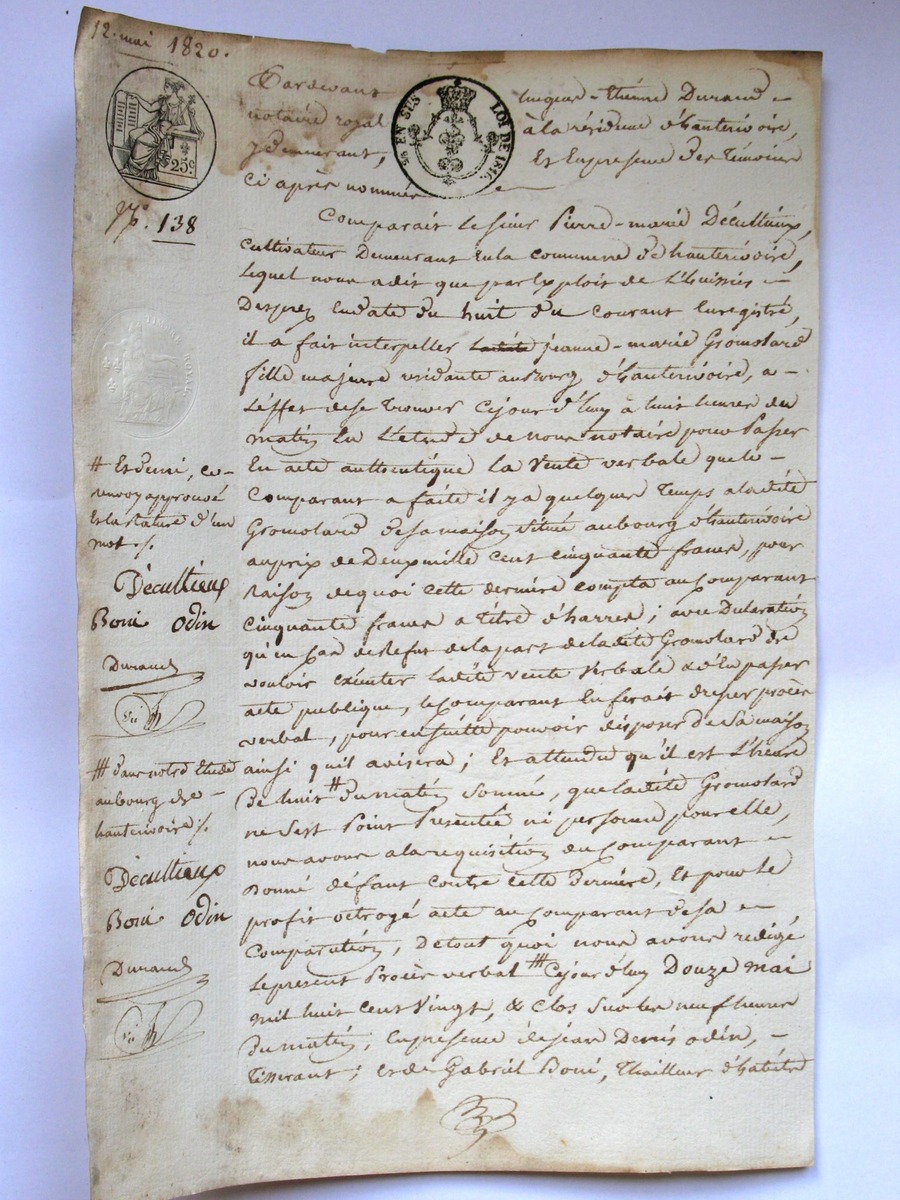 12. mai 1820.
Pardevant hugues-Etienne Durand -
notaire royal à la résidence d'hauterivoire,
y demeurant, Et En presence des témoins
ci après nommés
25c
EN SUS LOI DE 1816.
N°. 138
Comparait le sieur Pierre-marie Décultieux,
cultivateur Demeurant En la commune d'hauterivoire,
Lequel nous a dit que par Exploit de L'huissier -
Desprez En date du huit du courant Enregistré,
il a fait interpeller jeanne-marie Gromolard
fille majeure residante au Bourg d'hauterivoire, a -
L'effet de se trouver cejourd'huy à huit heures du
matin En L'etude de nous notaire pour Passer
En acte authentique la vente verbale que le -
Comparant a faite il y a quelques Temps a la dite
Gromolard de sa maison située au bourg d'hauterivoire
au prix de Deux mille cent cinquante francs, pour
raison de quoi cette dernière compta au Comparant
cinquante francs a titre d'harres; avec Declaration
qu'en cas de refus de la part de la dite Gromolard de
vouloir exécuter la dite vente verbale & d'En passer
acte publique, le Comparant En ferait dresser procès
verbal, pour ensuitte pouvoir disposer de sa maison
ainsi qu'il avisera; Et attendu qu'il est L'heure
De huit # du matin sonnée, que la dite Gromolard
ne s'est Point Presentée ni personne pour elle,
nous avons a la requisition du Comparant -
Donné défaut contre cette dernière, Et pour le
profit octroyé acte au Comparant de sa -
Comparution, De tout quoi nous avons redigé
Le present Procès verbal ## Cejourd'huy Douze mai
mil huit cent vingt, & clos sur les neuf heures
du matin, En presence de jean Denis odin, -
Tisserant; et de Gabriel Boni, Thailleur d'habits
# Et demi, ce
renvoy approuvé
Et la rature d'un
mot ./.
Décultieux
Boni odin
Durand
## dans notre Etude
au bourg de -
hauterivoire ./.
Décultieux
Boni odin
Durand